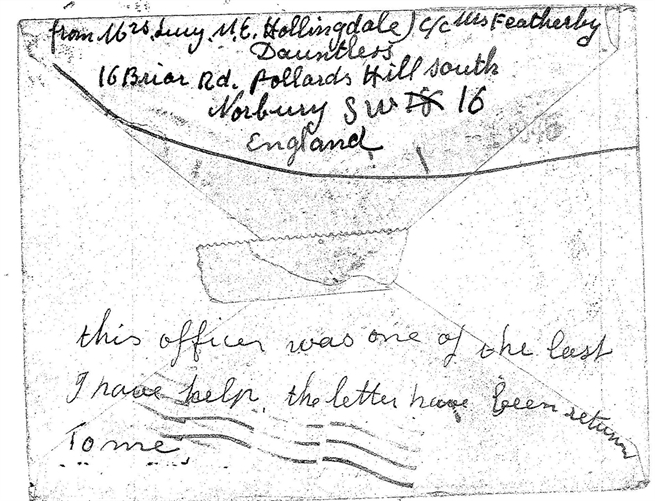 from Mrs. Lucy M.E. Hollingdale) C/c Mrs Featherby
Dauntless
16 Briar Rd. Pollards Hill South
Norbury SW 16
England
this officer was one of the last
I have help. the letter have been return
To me